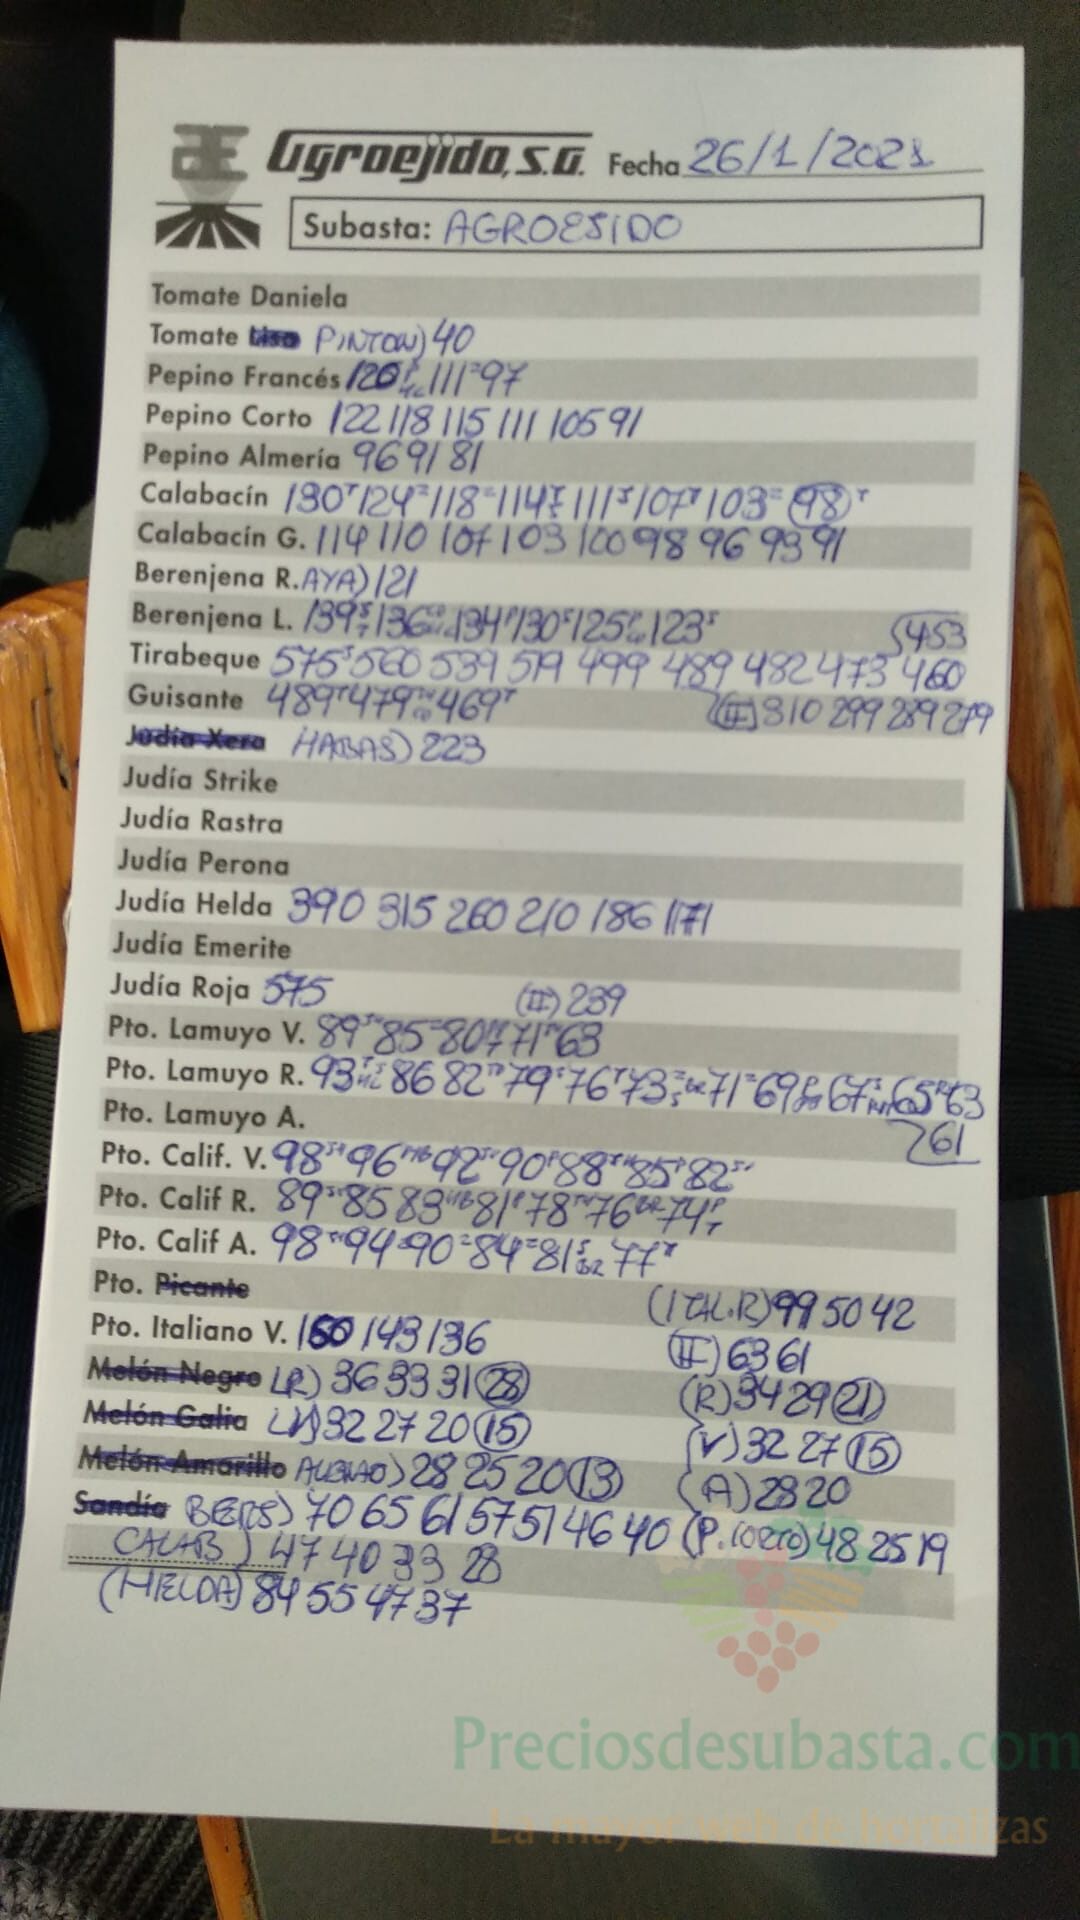 Agroejido, S.A. Fecha 26/1/2021
Subasta: AGROEJIDO
Tomate Daniela
Tomate Liso PINTON) 40
Pepino Francés 120 111 97
Pepino Corto 122 118 115 111 105 91
Pepino Almería 96 91 81
Calabacín 130 124 118 114 111 107 103 98
Calabacín G. 114 110 107 103 100 98 96 93 91
Berenjena R. AYA) 121
Berenjena L. 139 136 134 130 125 123
453
Tirabeque 575 560 539 519 499 489 482 473 460
Guisante 489 479 469 (II) 310 299 289 279
Judía Xera HABAS) 223
Judía Strike
Judía Rastra
Judía Perona
Judía Helda 390 315 260 210 186 171
Judía Emerite
Judía Roja 575 (II) 239
Pto. Lamuyo V. 89 85 80 77 71 63
Pto. Lamuyo R. 93 86 82 79 76 73 71 69 67 65 63
Pto. Lamuyo A. 61
Pto. Calif. V. 98 96 92 90 88 85 82
Pto. Calif R. 89 85 83 81 78 76 74
Pto. Calif A. 98 94 90 84 81 77
Pto. Picante (ITAL.R) 99 50 42
Pto. Italiano V. 150 143 136 (II) 63 61
Melón Negro LR) 36 33 31 28 (R) 34 29 21
Melón Galia LV) 32 27 20 15 (V) 32 27 15
Melón Amarillo 28 25 20 13 (A) 28 20
Sandía BERJS) 70 65 61 57 51 46 40 (P. CORTO) 48 25 19
CALAB) 47 40 33 28
(HELDA) 84 55 47 37
Preciosdesubasta.com
La mayor web de hortalizas